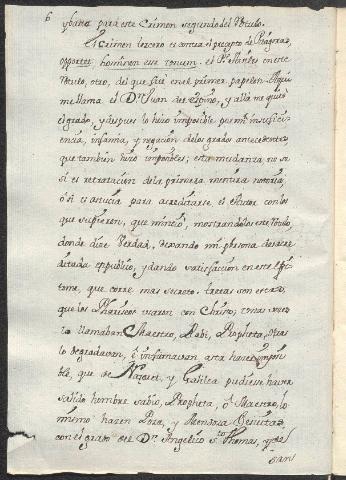 6
y basta para este Crimen segundo del Rotulo.
El Crimen tercero es contra el precepto de Pitagoras,
oportet hominem esse unum. el Pe
Rotulo, otro, del que fue en el primer papelon. Aqui
me llama el Dr. Juan del Espino, y alla me quitó
el grado, y despues lo hizo imposible por mi insufici-
encia, infamia, y negacion de los grados antecedentes,
que tambien hizo imposibles; esta mudanza no se
si es retratacion de la primera mentira notoria,
ó si es astucia para acreditarse el Autor con los
que supieren, que mintió, mostrandoles este Rotulo,
donde dice Verdad, dexando mi persona desacre
ditada en publico, y dando satisfaccion en este Epi
tome, que corre mas secreto. tretas son estas,
que los Phariseos usaron con Christo, unas veces
lo llamaban Maestro, Rabi, Propheta, otras
lo degradavan, è infamavan asta hacer imposi
ble, que de Nazaret, y Galilea pudiese haver
salido hombre sabio, Propheta, ó Maestro, lo
mismo hacen Poza, y Mendoza Jesuitas
con el grado del Dr. Angelico Sto. Thomas, y